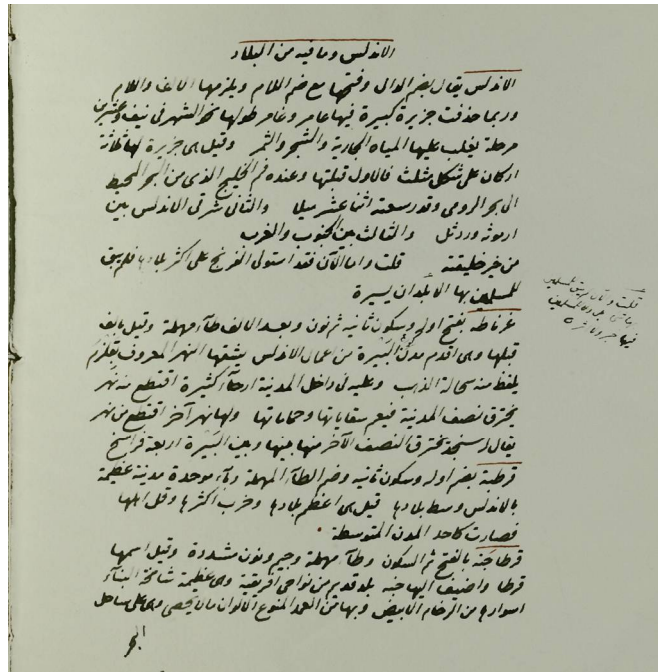 الاندلس وما فيه من البلاد
الاندلس يقال بضم الدال وفتحها مع ضم اللام ويلزمها الالف واللام
وربما حذفت جزيرة كبيرة فيها عامر وغامر طولها نحو الشهر في نيف وعشرين
مرحلة يغلب عليها المياه الجارية والشجر والثمر وقيل هى جزيرة لها ثلاثة
اركان على شكل مثلث فالاول قبلتها وعنده فم الخليج الذى من البحر المحيط
الى بحر الرومى وقدر سعته اثنا عشر ميلا والثانى شرقى الاندلس بين
اربونه وردثل والثالث بين الجنوب والغرب
من خير خليقته قلت واما الآن فقد استولى الفرنج على اكثر بلادها فلم يبق
للمسلمين بها الا بلدان يسيرة
غرناطه بفتح اوله وسكون ثانيه ثم نون وبعد الالف طآء مهملة وقيل بالف
قبلها وهى اقدم مدن البيرة من اعمال الاندلس يشقها النهر المعروف بقلزم
يلقط منه سحالة الذهب وعليه فى داخل المدينة ارحآء كثيرة اقتطع منه نهر
يخترق نصف المدينة فيعم سقاياتها وحماماتها ولها نهر آخر اقتطع من نهر
يقال له سنجد يخترق النصف الآخر منها بينها وبين البيرة اربعة فراسخ
قرطبة بضم اوله وسكون ثانيه وضم الطآء المهملة وبآء موحدة مدينة عظيمة
بالاندلس وسط بلادها قيل هى اعظم بلادها وخرب اكثرها وقل اهلها
فصارت كاحد المدن المتوسطة
قرطاجنة بالفتح ثم السكون وطآء مهملة وجيم ونون مشددة وقيل اسمها
قرطا واضيف اليها جنه بلد قديم من نواحى افريقية وهى عظيمة شامخة البنآء
اسوارها من الرخام الابيض وبها من العمد المتنوع الالوان ما لا يحصى وهى على ساحل
البحر